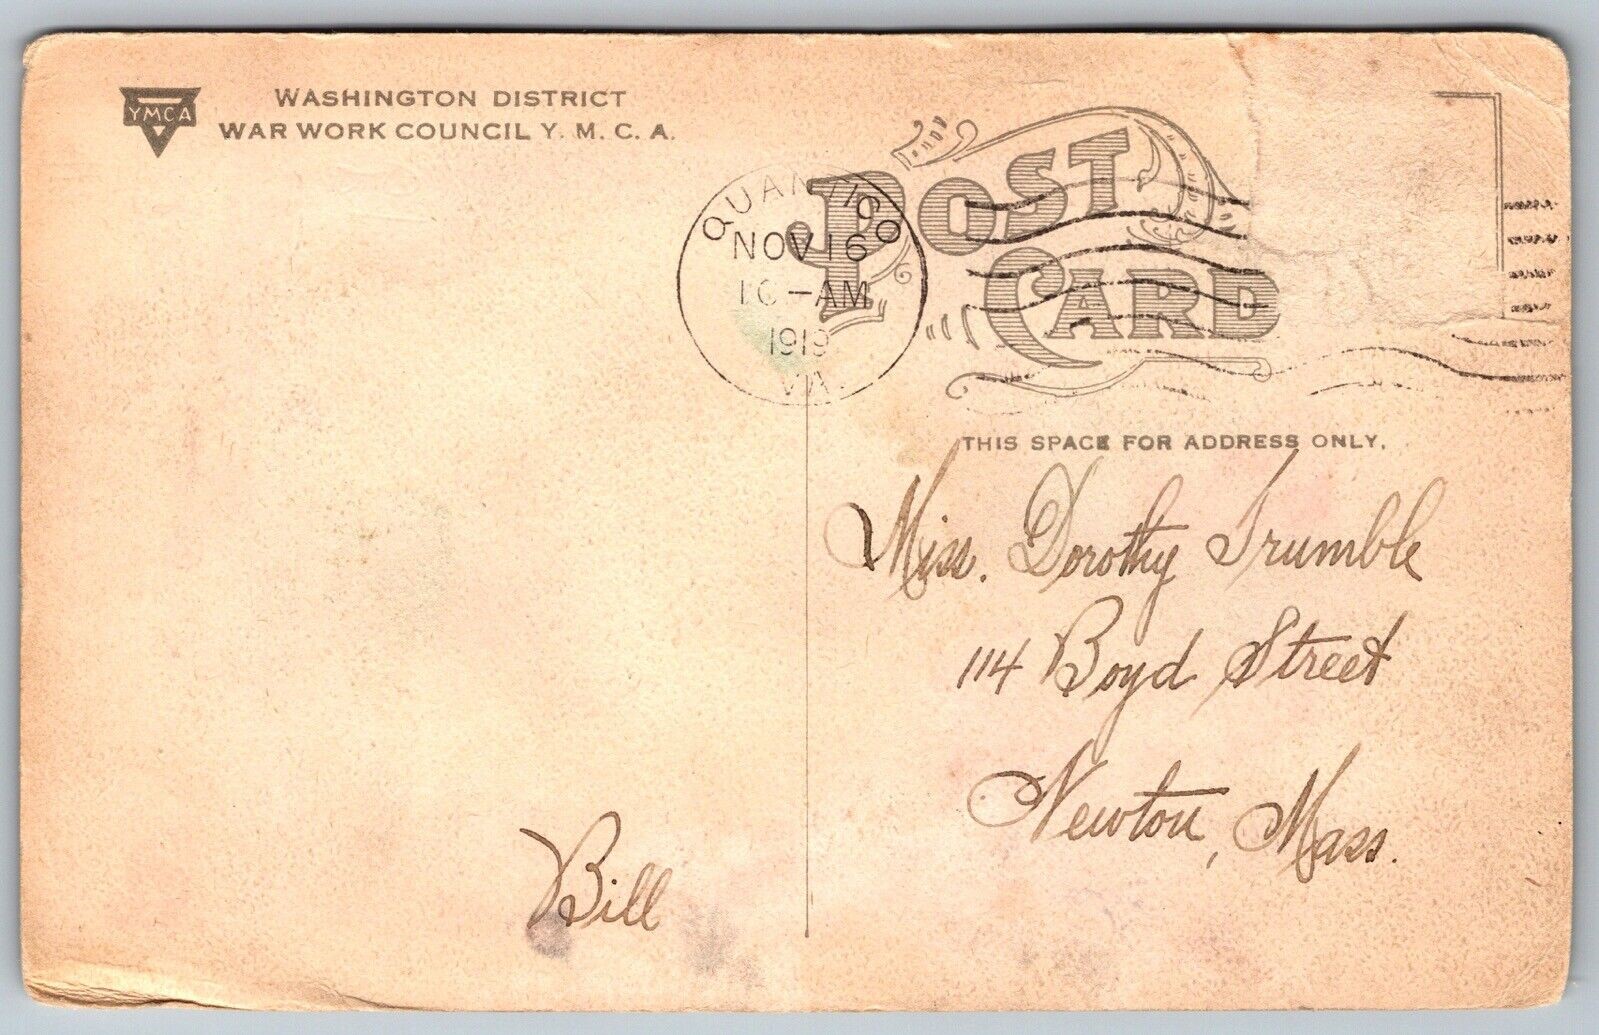 YMCA
WASHINGTON DISTRICT
WAR WORK COUNCIL Y. M. C. A.
POST CARD
QUANTICO
NOV 16
10-AM
1919
VA.
THIS SPACE FOR ADDRESS ONLY.
Miss. Dorothy Trumble
114 Boyd Street
Newton, Mass.
Bill